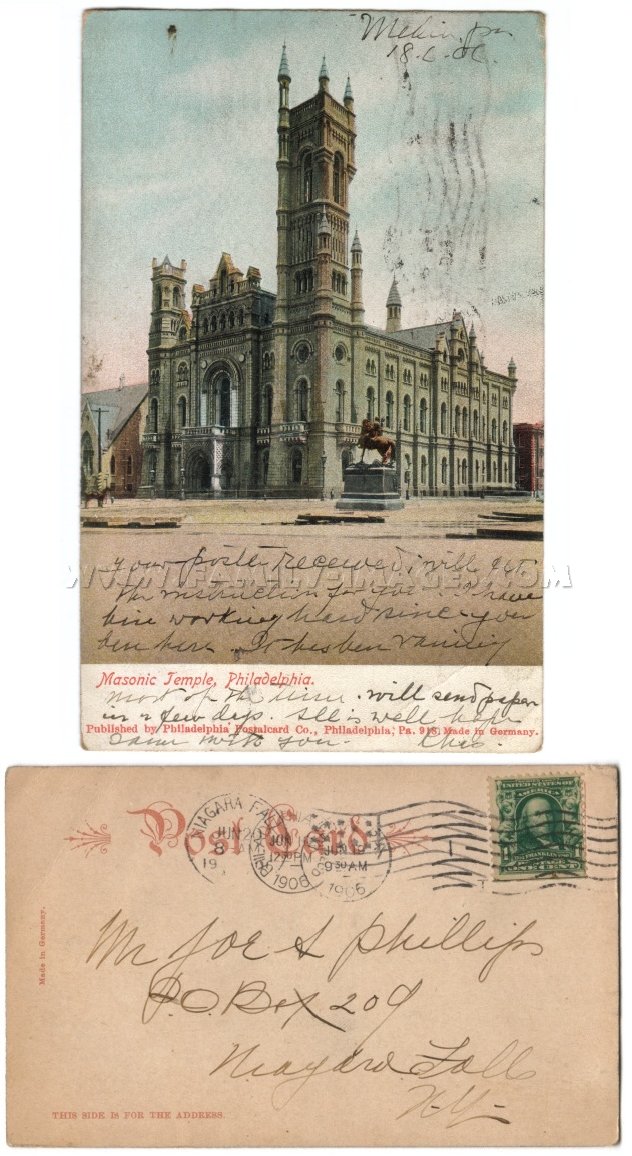 18-6-06.
your postle received, i will get
the instruction for you. I have
bine working hard since you
ben here. It has ben raining
WWW.FAMILY-IMAGES.COM
Masonic Temple, Philadelphia.
most of the time. will send paper
in a few days. All is well hope
Published by Philadelphia Postalcard Co., Philadelphia, Pa. 918. Made in Germany.
same with you. Chas.
Post Card
NIAGARA FALLS
JUN 20
8 AM
JUN
12 30 PM
1906
JUN 19
9 30 AM
1906
UNITED STATES OF
AMERICA
FRANKLIN
ONE CENT
Made in Germany.
Mr Joe S Phillips
P.O. Box 209
Niagara Falls
N.Y.
THIS SIDE IS FOR THE ADDRESS.